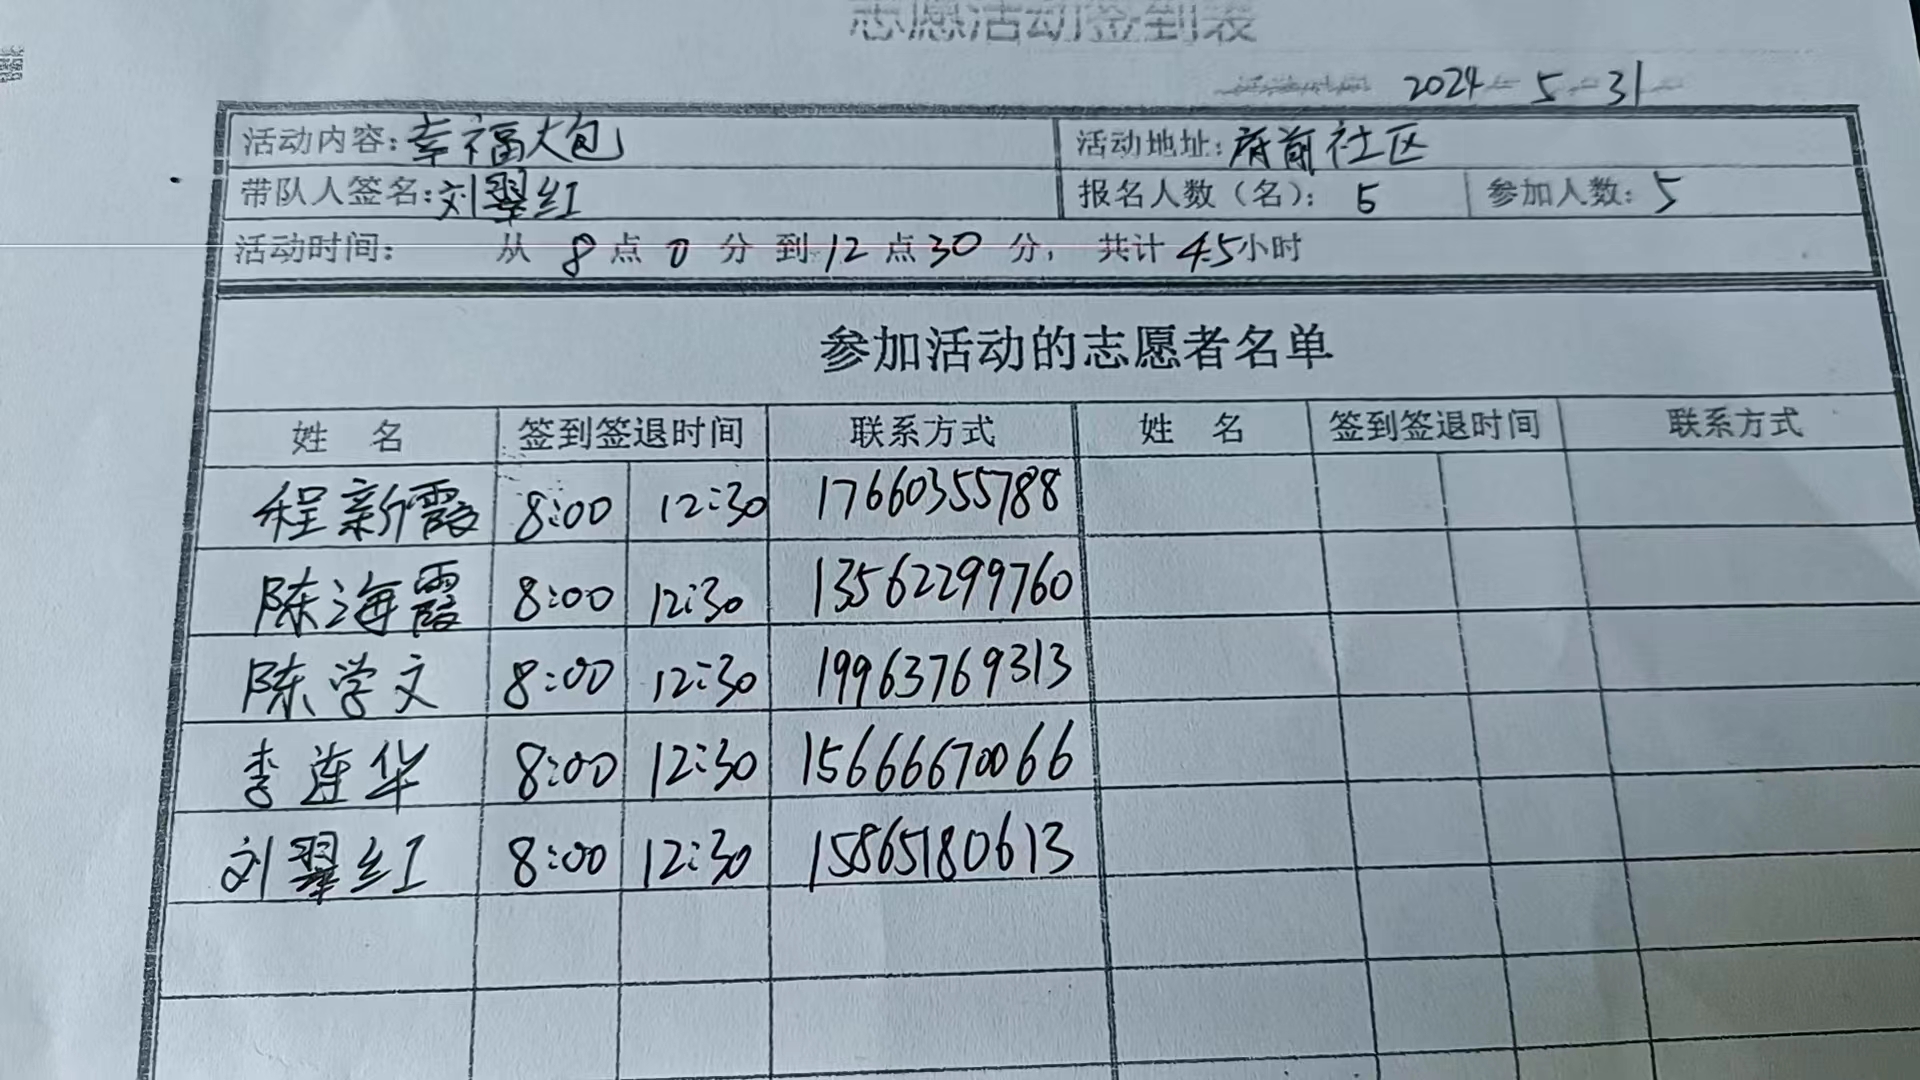 志愿活动签到表
2024-5-31
活动内容:幸福大包 活动地址:府前社区
带队人签名:刘翠红 报名人数(名): 5 参加人数: 5
活动时间: 从 8 点 0 分 到 12 点 30 分, 共计 4.5小时
参加活动的志愿者名单
姓 名 签到签退时间 联系方式 姓 名 签到签退时间 联系方式
程新霞 8:00 12:30 17660355788
陈海霞 8:00 12:30 13562299760
陈学文 8:00 12:30 19963769313
李连华 8:00 12:30 15666670066
刘翠红 8:00 12:30 15865180613